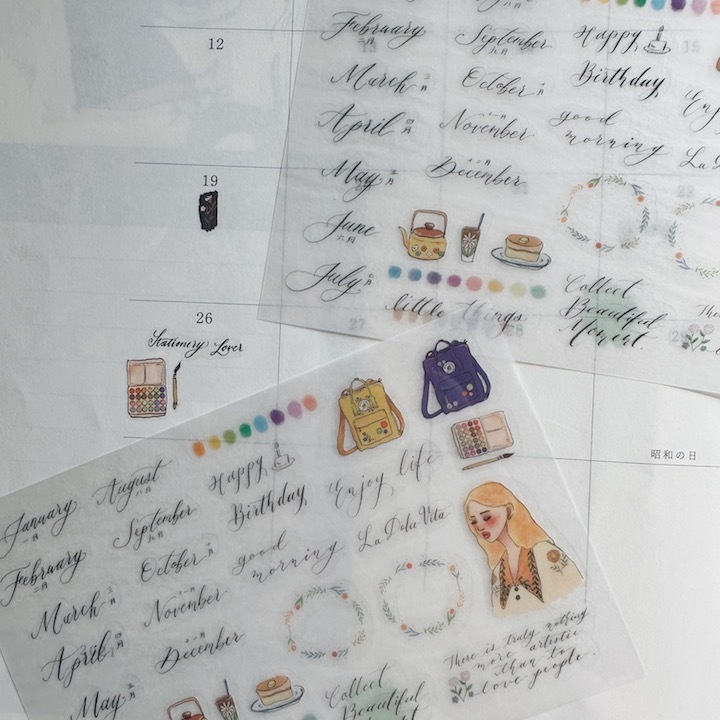 12
19
26
Stationery Lover
昭和の日
February
二月
March
三月
April
四月
May
五月
June
六月
July
七月
September
九月
October
十月
November
十一月
December
十二月
Happy
Birthday,
good
morning
Enj
La D
little things
Collect
Beautiful
Moment.
The
27
28
January
一月
February
二月
March
三月
April
四月
May
五月
August
八月
September
九月
October
十月
November
十一月
December
十二月
Happy
Birthday,
good
morning
Enjoy life
La Dolce Vita
Collect
Beautiful
Moment
There is truly nothing
more artistic
than to
love people.